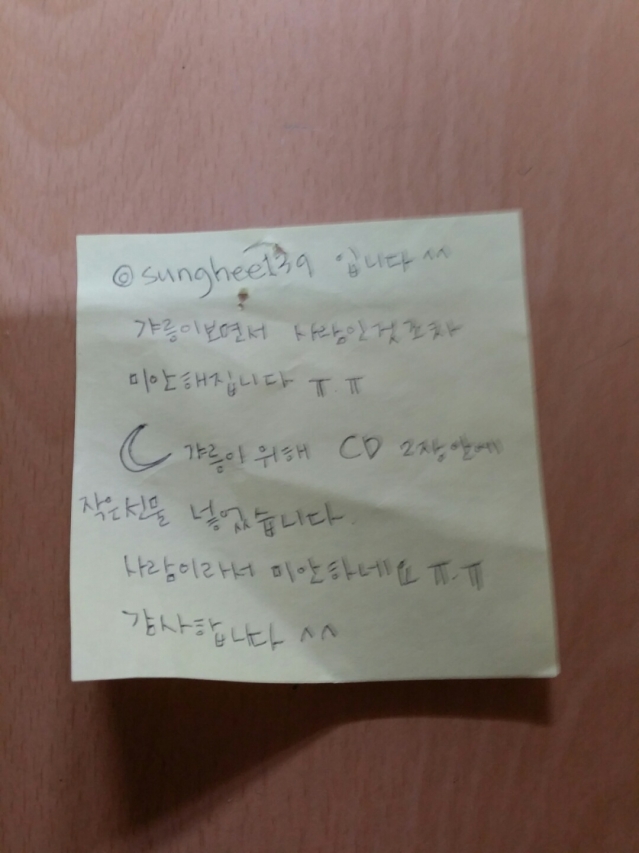 @sunghee139 입니다 ^^
갸릉이보면서 사람인것조차
미안해집니다 ㅠ.ㅠ
갸릉이 위해 CD 2장안에
작은선물 넣었습니다.
사람이라서 미안하네요 ㅠ.ㅠ
감사합니다 ^^